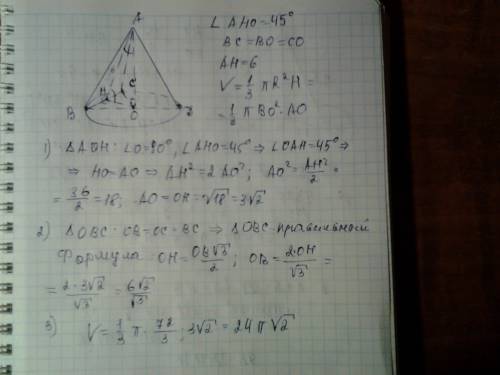 A
∠AHO=45°
BC=BO=CO
AH=6
V=1/3 πR²H=
=1/3 πBO²·AO
B H C O
1) ΔAOH: ∠O=90°, ∠AHO=45° ⇒ ∠OAH=45° ⇒
⇒ HO=AO ⇒ AH²=2AO²; AO²=AH²/2=
=36/2=18; AO=OH=√18=3√2
2) ΔOBC: OB=OC=BC ⇒ ΔOBC-правильный
Формула: OH=OB√3/2; OB=2·OH/√3=
=2·3√2/√3=6√2/√3
3) V=1/3 π·72/3·3√2=24π√2